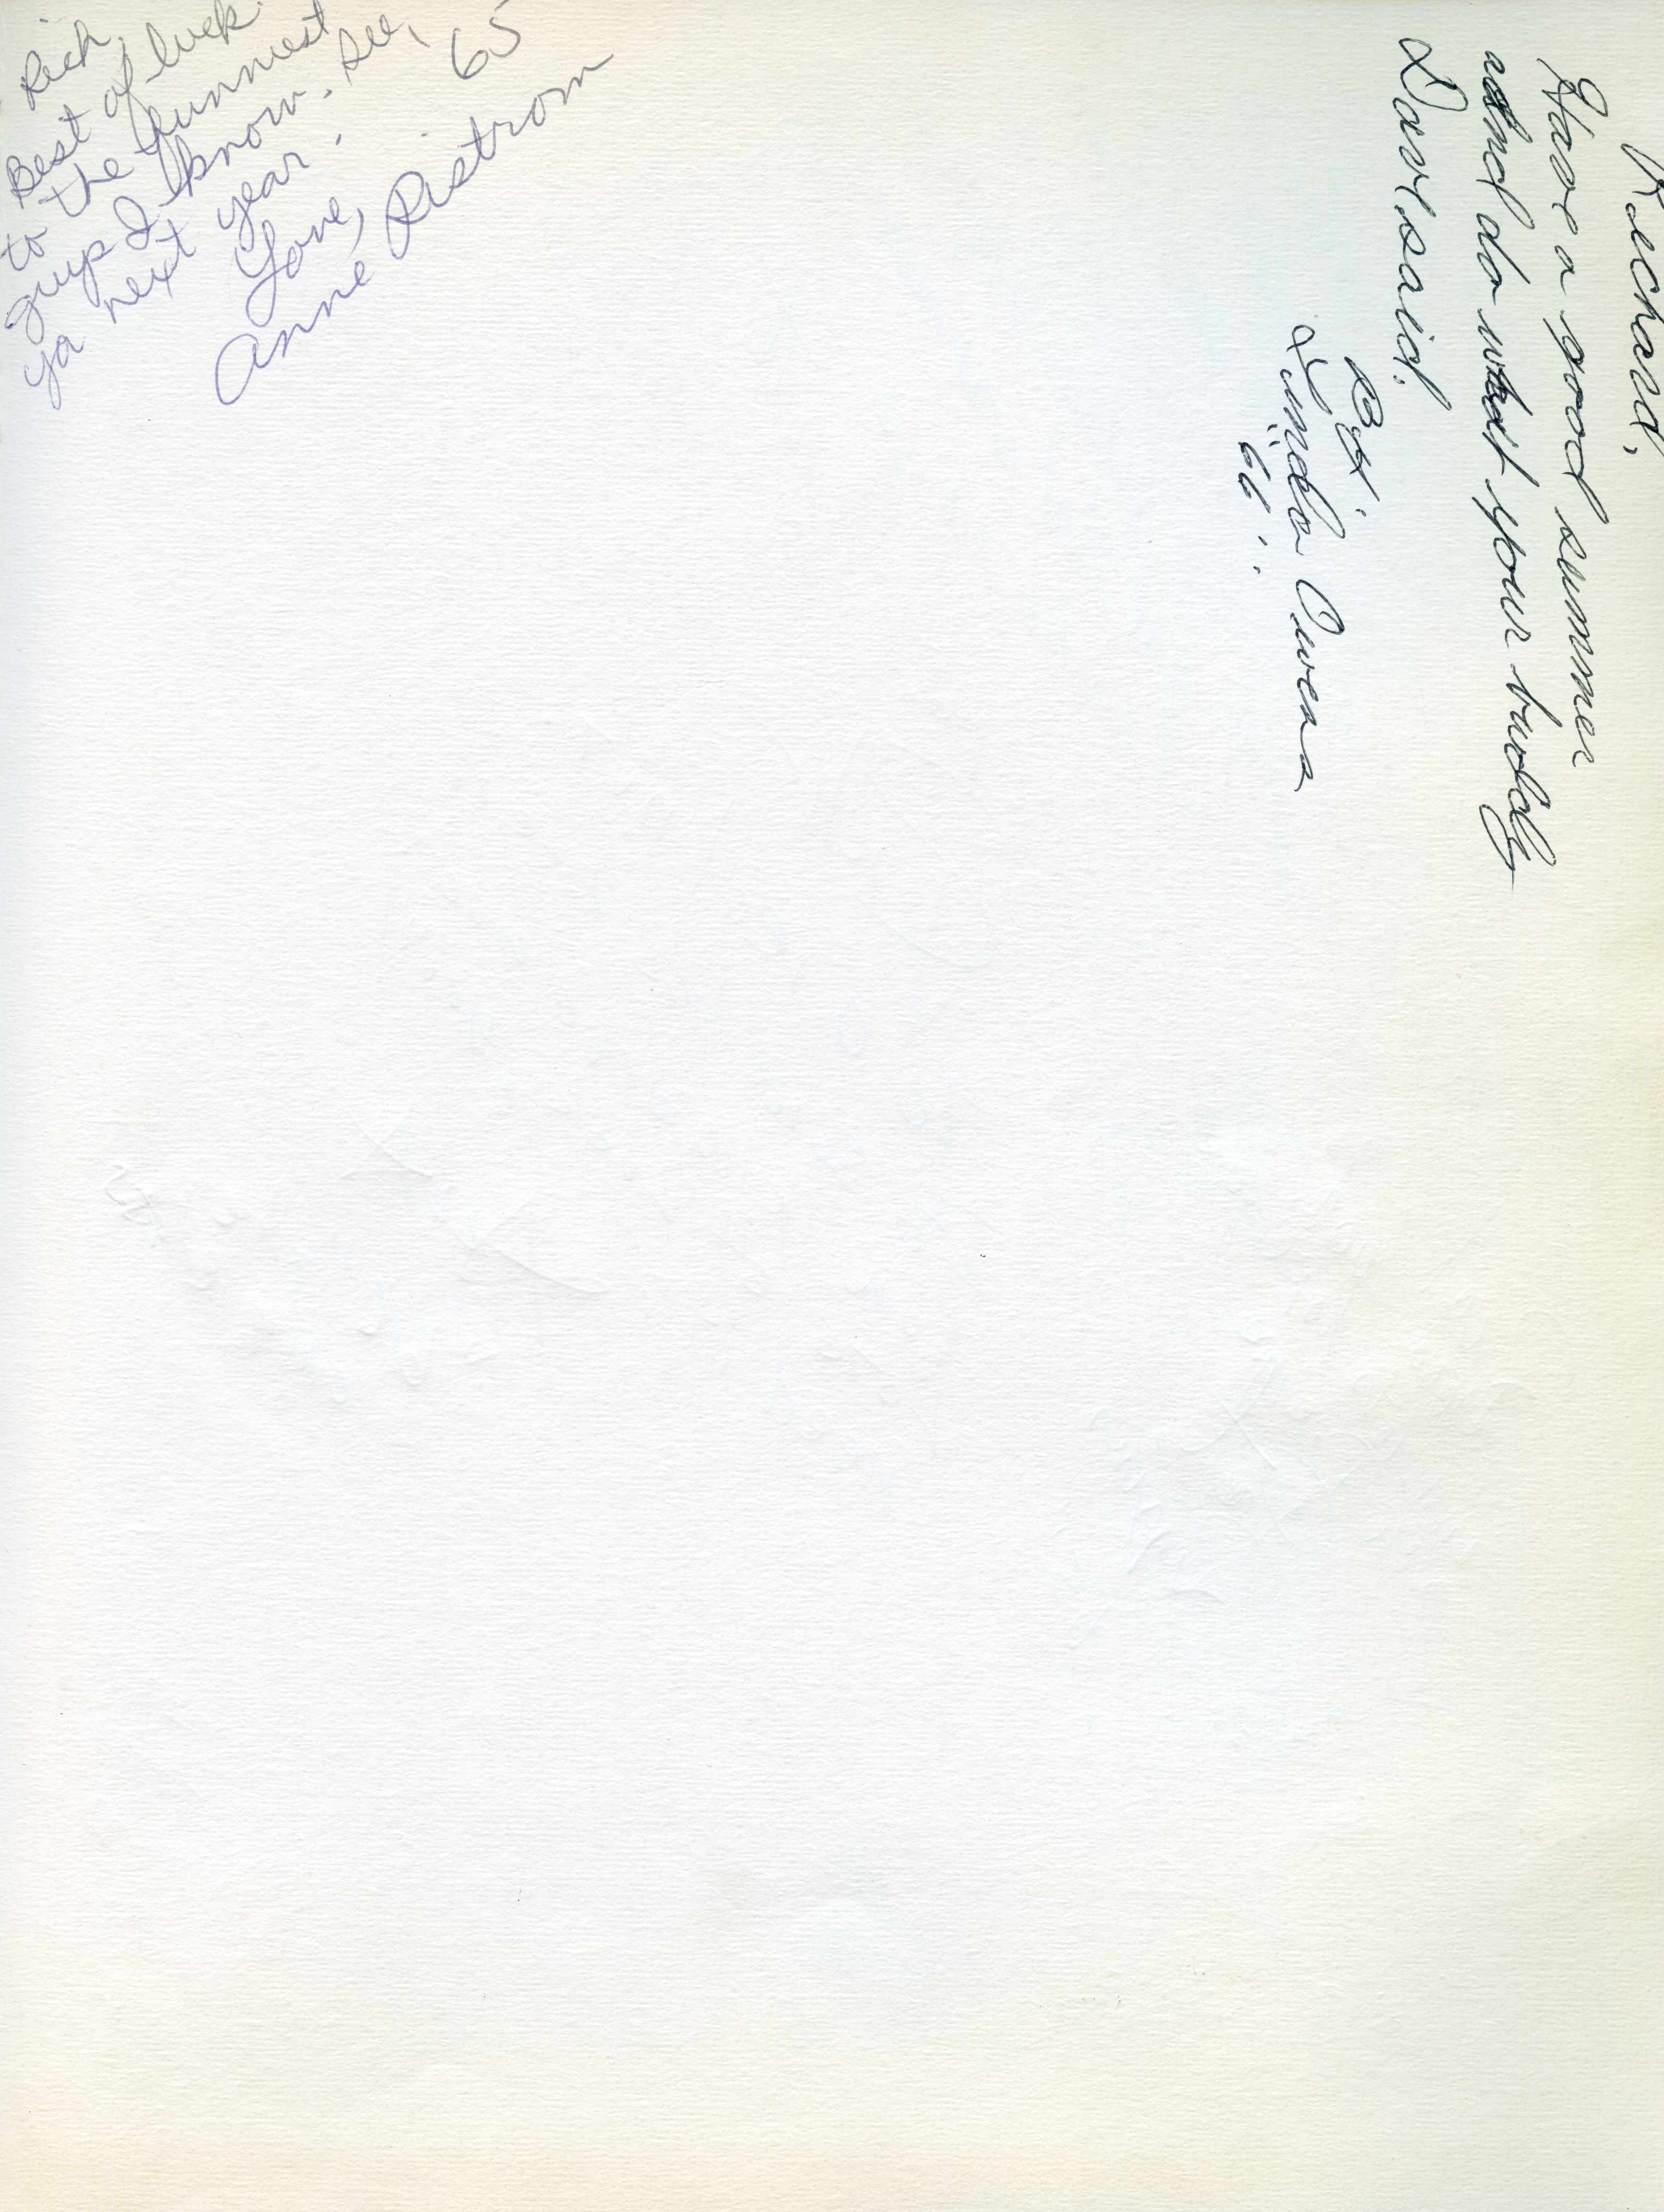 Rich,
Best of luck
to the funniest
guys I know. See,
ya next year.
Love,
Anne Ristrom
65
Richard,
Have a good summer
and do what your buddy
Dave said.
By.
Linda Owens
'66'